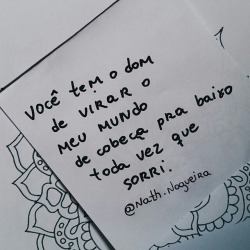 VOCÊ TEM O DOM
DE VIRAR O
MEU MUNDO
DE CABEÇA PRA BAIXO
TODA VEZ QUE
SORRI.
@Nath.Nogueira